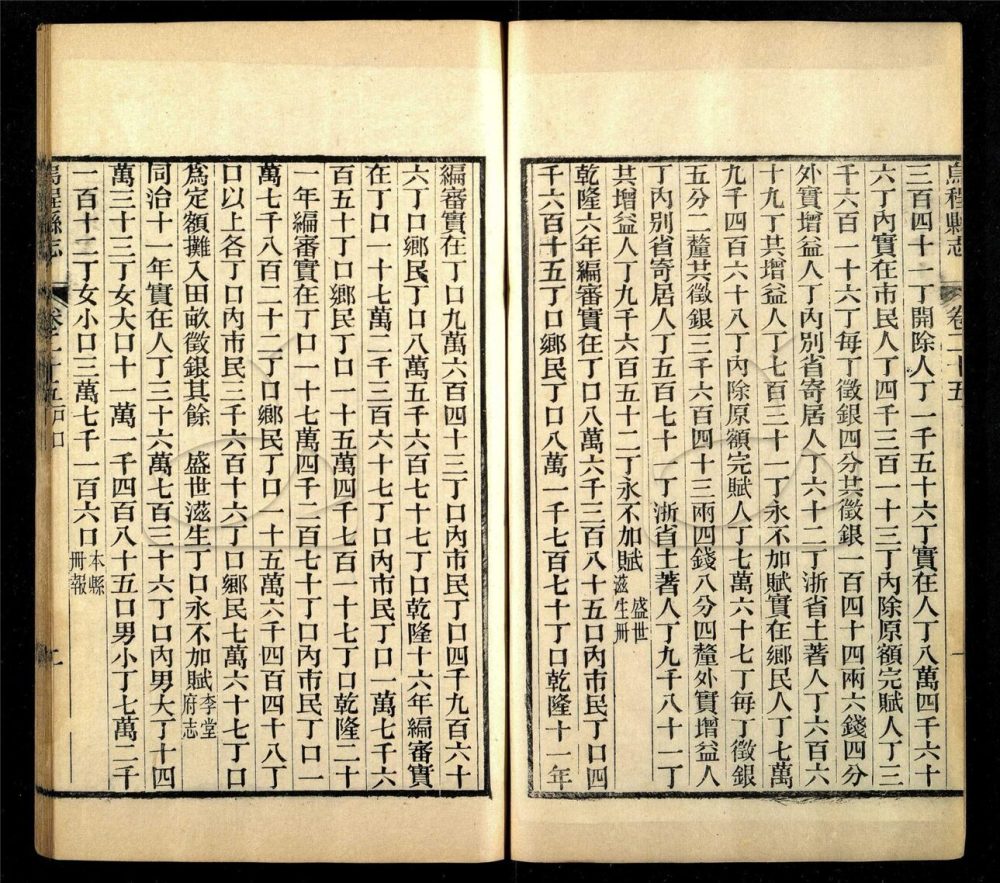 烏程縣志 卷二十五 一
三百四十一丁開除人丁一千五十六丁實在人丁八萬四千六十
六丁內實在市民人丁四千三百一十三丁內除原額完賦人丁三
千六百一十六丁每丁徵銀四分共徵銀一百四十四兩六錢四分
外實增益人丁內別省寄居人丁六十二丁浙省土著人丁六百六
十九丁共增益人丁七百三十一丁永不加賦實在鄉民人丁七萬
九千四百六十八丁內除原額完賦人丁七萬六十七丁每丁徵銀
五分二釐共徵銀三千六百四十三兩四錢八分四釐外實增益人
丁內別省寄居人丁五百七十一丁浙省土著人丁九千八十一丁
其增益人丁九千六百五十二丁永不加賦盛世滋生冊
乾隆六年編審實在丁口八萬六千三百八十五口內市民丁口四
千六百十五丁口鄉民丁口八萬一千七百七十丁口乾隆十一年
編審實在丁口九萬六百四十三丁口內市民丁口四千九百六十
六丁口鄉民丁口八萬五千六百七十七丁口乾隆十六年編審實
在丁口一十七萬二千三百六十七丁口內市民丁口一萬七千六
百五十丁口鄉民丁口一十五萬四千七百一十七丁口乾隆二十
一年編審實在丁口一十七萬四千二百七十丁口內市民丁口一
萬七千八百二十二丁口鄉民丁口一十五萬六千四百四十八丁
口以上各丁口內市民三千六百十六丁口鄉民七萬六十七丁口
爲定額攤入田畝徵銀其餘 盛世滋生丁口永不加賦李堂府志
同治十一年實在人丁三十六萬七百三十六丁口內男大丁十四
萬三十三丁女大口十一萬一千四百八十五口男小丁七萬二千
一百十二丁女小口三萬七千一百六口本縣冊報
烏程縣志 卷二十五 戶口